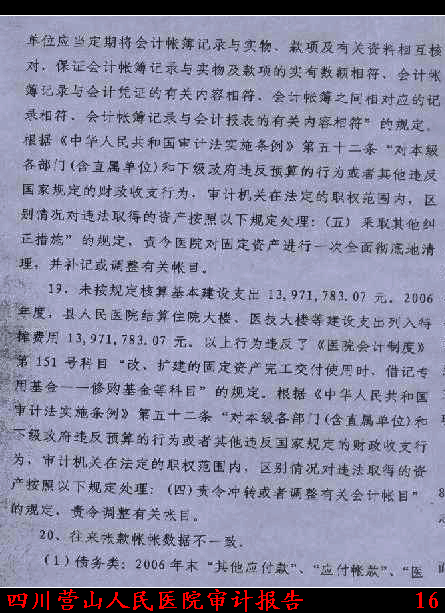 单位应当定期将会计帐簿记录与实物、款项及有关资料相互核
对，保证会计帐簿记录与实物及款项的实有数额相符、会计帐
簿记录与会计凭证的有关内容相符、会计帐簿之间相对应的记
录相符、会计帐簿记录与会计报表的有关内容相符”的规定。
根据《中华人民共和国审计法实施条例》第五十二条“对本级
各部门(含直属单位)和下级政府违反预算的行为或者其他违反
国家规定的财政收支行为，审计机关在法定的职权范围内，区
别情况对违法取得的资产按照以下规定处理：(五) 采取其他纠
正措施”的规定，责令医院对固定资产进行一次全面彻底地清
理，并补记或调整有关帐目。
19、未按规定核算基本建设支出 13,971,783.07 元。2006
年度，县人民医院结算住院大楼、医技大楼等建设支出列入待
摊费用 13,971,783.07 元。以上行为违反了《医院会计制度》
第 151 号科目“改、扩建的固定资产完工交付使用时，借记专
用基金——修购基金等科目”的规定。根据《中华人民共和国
审计法实施条例》第五十二条“对本级各部门(含直属单位)和
下级政府违反预算的行为或者其他违反国家规定的财政收支行
为，审计机关在法定的职权范围内，区别情况对违法取得的资
产按照以下规定处理：(四)责令冲转或者调整有关会计帐目”
的规定，责令调整有关帐目。
20、往来帐款帐帐数据不一致.
(1)债务类：2006 年末“其他应付款”、“应付帐款”、“医
四川营山人民医院审计报告 16